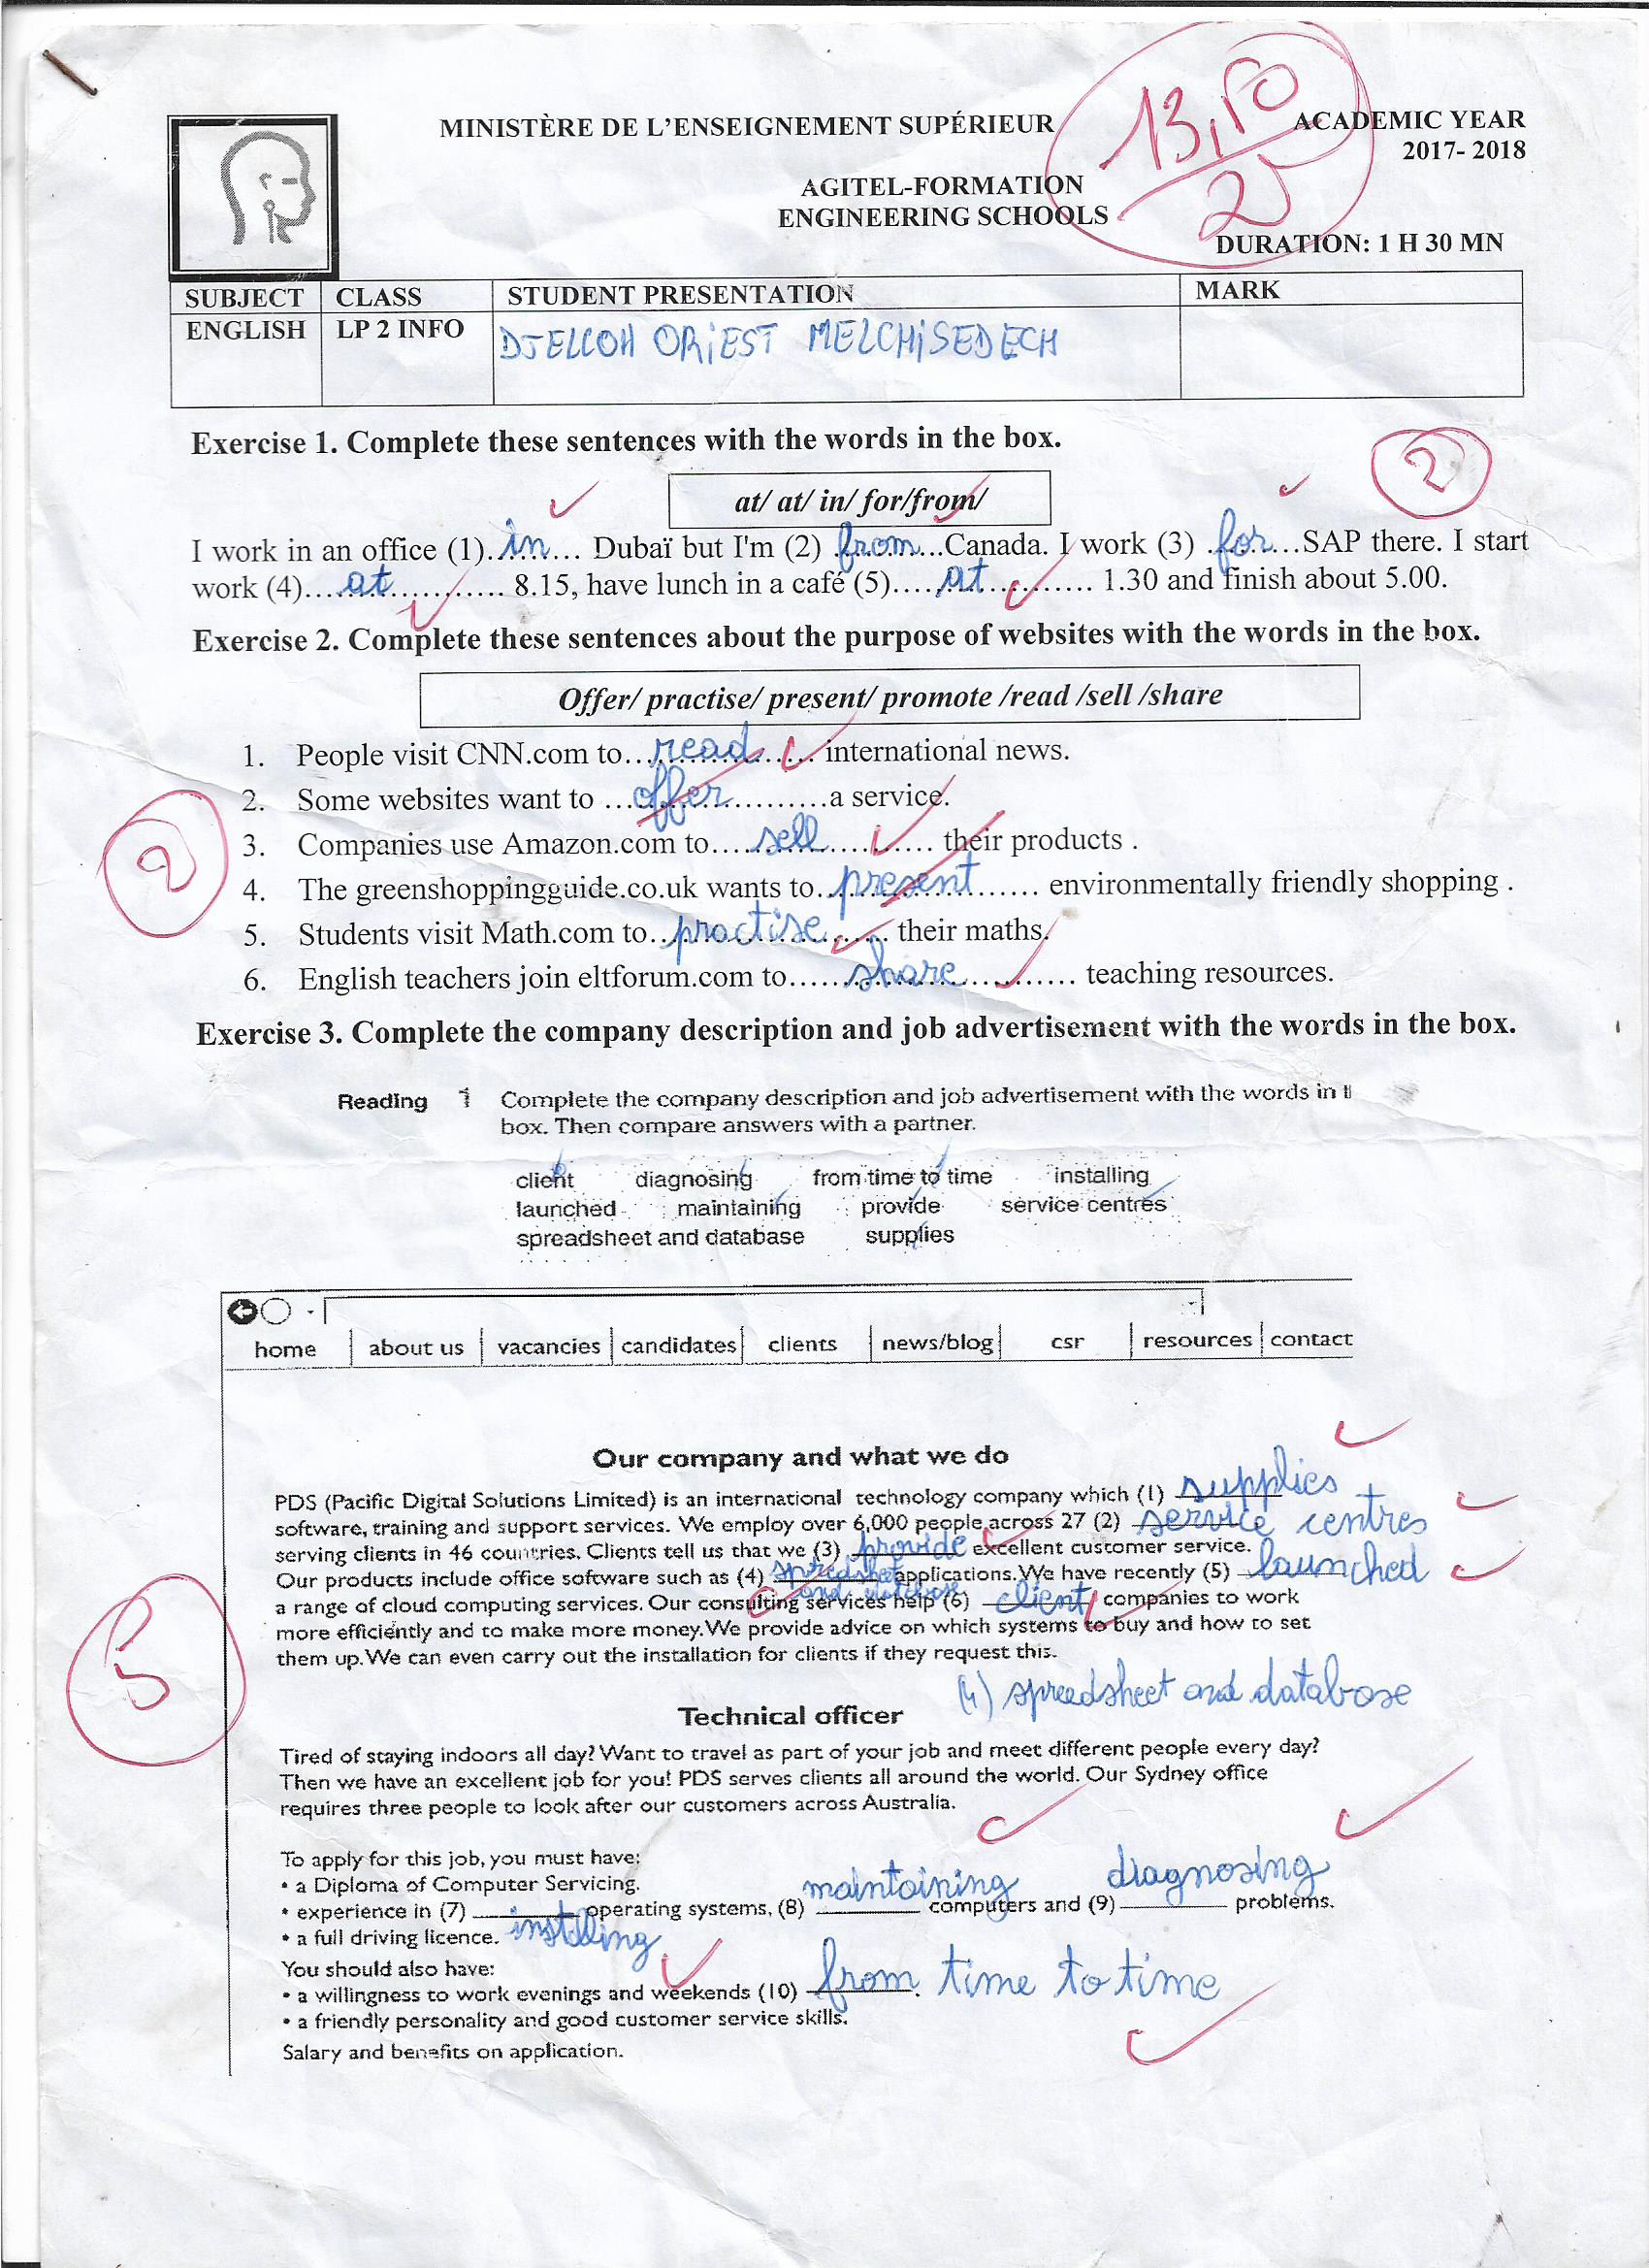 MINISTÈRE DE L'ENSEIGNEMENT SUPÉRIEUR
ACADEMIC YEAR
2017- 2018
13,50
AGITEL-FORMATION
ENGINEERING SCHOOLS
DURATION: 1 H 30 MN
SUBJECT CLASS STUDENT PRESENTATION MARK
ENGLISH LP 2 INFO DJELLOH ORIEST MELCHISEDECH
Exercise 1. Complete these sentences with the words in the box.
2
at/ at/ in/ for/from/
I work in an office (1)..in... Dubaï but I'm (2) .from...Canada. I work (3) .for...SAP there. I start
work (4)....at............ 8.15, have lunch in a café (5).....at.......... 1.30 and finish about 5.00.
Exercise 2. Complete these sentences about the purpose of websites with the words in the box.
Offer/ practise/ present/ promote /read /sell /share
1. People visit CNN.com to...read...... international news.
2. Some websites want to ...offer..........a service.
2
3. Companies use Amazon.com to....sell......... their products .
4. The greenshoppingguide.co.uk wants to..present...... environmentally friendly shopping .
5. Students visit Math.com to..practise...... their maths.
6. English teachers join eltforum.com to......share.......... teaching resources.
Exercise 3. Complete the company description and job advertisement with the words in the box.
Reading 1 Complete the company description and job advertisement with the words in
box. Then compare answers with a partner.
client diagnosing from time to time installing
launched maintaining provide service centres
spreadsheet and database supplies
home about us vacancies candidates clients news/blog csr resources contact
Our company and what we do
PDS (Pacific Digital Solutions Limited) is an international technology company which (1) supplies
software, training and support services. We employ over 6,000 people across 27 (2) service centres
serving clients in 46 countries. Clients tell us that we (3) provide excellent customer service.
Our products include office software such as (4) spredsheet and database applications. We have recently (5) launched
a range of cloud computing services. Our consulting services help (6) client companies to work
more efficiently and to make more money. We provide advice on which systems to buy and how to set
them up. We can even carry out the installation for clients if they request this.
5
(4) spreedsheet and database
Technical officer
Tired of staying indoors all day? Want to travel as part of your job and meet different people every day?
Then we have an excellent job for you! PDS serves clients all around the world. Our Sydney office
requires three people to look after our customers across Australia.
To apply for this job, you must have:
• a Diploma of Computer Servicing.
• experience in (7) installing operating systems, (8) maintaining computers and (9) diagnosing problems.
• a full driving licence.
You should also have:
• a willingness to work evenings and weekends (10) from time to time.
• a friendly personality and good customer service skills.
Salary and benefits on application.